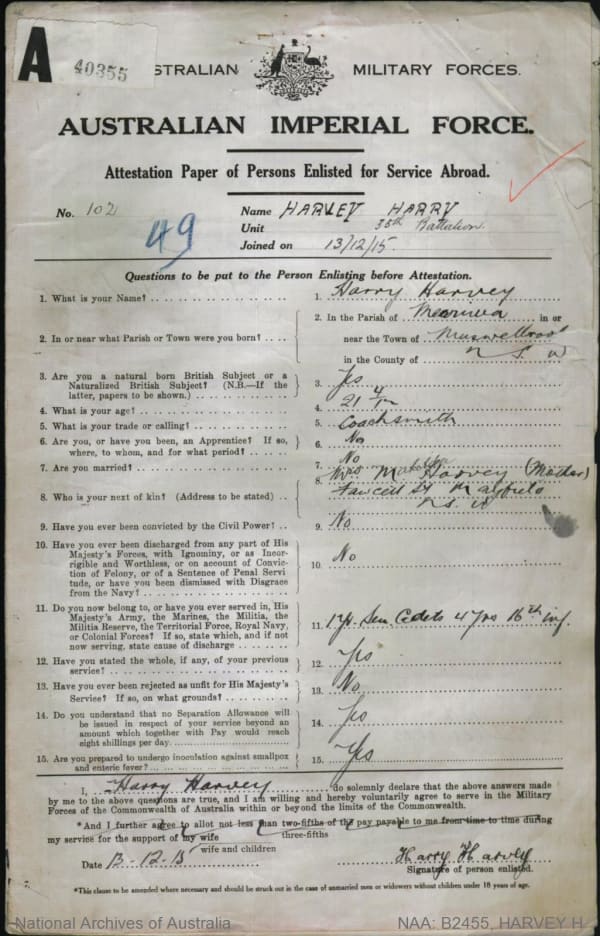 A
40355
STRALIAN MILITARY FORCES.
AUSTRALIAN IMPERIAL FORCE.
Attestation Paper of Persons Enlisted for Service Abroad.
No. 102
49
Name HARVEY HARRY
Unit 35th Battalion.
Joined on 13/12/15.
Questions to be put to the Person Enlisting before Attestation.
1. What is your Name? 1. Harry Harvey
2. In or near what Parish or Town were you born? 2. In the Parish of Merriwa in or
near the Town of Muswellbrook
in the County of N S W
3. Are you a natural born British Subject or a
Naturalized British Subject? (N.B.—If the
latter, papers to be shown.) 3. Yes
4. What is your age? 4. 21 4/12
5. What is your trade or calling? 5. Coachsmith
6. Are you, or have you been, an Apprentice? If so,
where, to whom, and for what period? 6. No
7. Are you married? 7. No
8. Who is your next of kin? (Address to be stated) 8. Mrs Harvey (Mother)
Fawcett St Mayfield
N S W
9. Have you ever been convicted by the Civil Power? 9. No
10. Have you ever been discharged from any part of His
Majesty's Forces, with Ignominy, or as Incor-
rigible and Worthless, or on account of Convic-
tion of Felony, or of a Sentence of Penal Servi
tude, or have you been dismissed with Disgrace
from the Navy? 10. No
11. Do you now belong to, or have you ever served in, His
Majesty's Army, the Marines, the Militia, the
Militia Reserve, the Territorial Force, Royal Navy,
or Colonial Forces? If so, state which, and if not
now serving, state cause of discharge 11. 1 yr. Sen Cadets 4 yrs 16th inf.
12. Have you stated the whole, if any, of your previous
service? 12. Yes
13. Have you ever been rejected as unfit for His Majesty's
Service? If so, on what grounds? 13. No
14. Do you understand that no Separation Allowance will
be issued in respect of your service beyond an
amount which together with Pay would reach
eight shillings per day. 14. Yes
15. Are you prepared to undergo inoculation against smallpox
and enteric fever? 15. Yes
I, Harry Harvey do solemnly declare that the above answers made
by me to the above questions are true, and I am willing and hereby voluntarily agree to serve in the Military
Forces of the Commonwealth of Australia within or beyond the limits of the Commonwealth.
*And I further agree to allot not less than two-fifths of the pay payable to me from time to time during
three-fifths
my service for the support of my wife
wife and children
Date 13-12-15 Harry Harvey
Signature of person enlisted.
*This clause to be amended where necessary and should be struck out in the case of unmarried men or widowers without children under 18 years of age.
National Archives of Australia NAA: B2455, HARVEY H